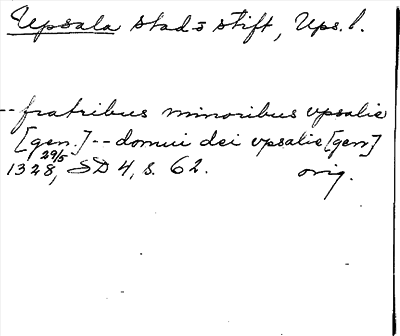 Upsala stads stift, Ups. l.
-- fratribus minoribus vpsalie
[gen.] -- domui dei vpsalie [gen]
29/5
1328, SD 4, s. 62. orig.